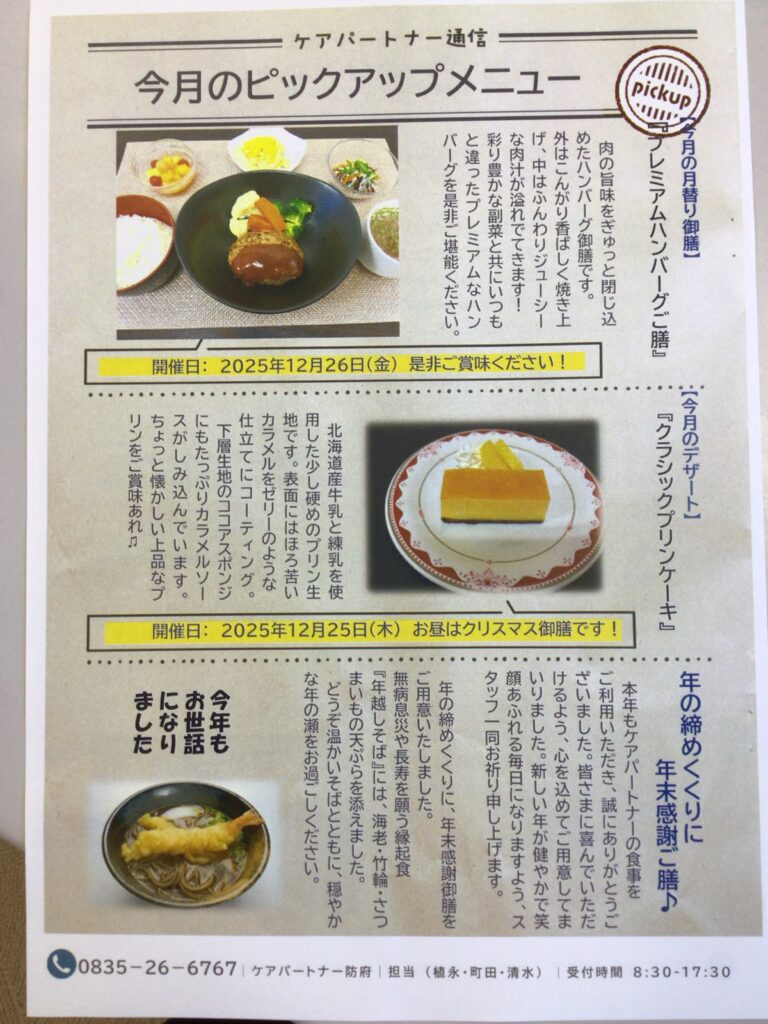 ケアパートナー通信
今月のピックアップメニュー
pickup
【今月の月替り御膳】
『プレミアムハンバーグご膳』
肉の旨味をぎゅっと閉じ込
めたハンバーグ御膳です。
外はこんがり香ばしく焼き上
げ、中はふんわりジューシー
な肉汁が溢れでてきます！
彩り豊かな副菜と共にいつも
と違ったプレミアムなハン
バーグを是非ご堪能ください。
開催日： 2025年12月26日(金) 是非ご賞味ください！
【今月のデザート】
『クラシックプリンケーキ』
北海道産牛乳と練乳を使
用した少し硬めのプリン生
地です。表面にはほろ苦い
カラメルをゼリーのような
仕立てにコーティング。
下層生地のココアスポンジ
にもたっぷりカラメルソー
スがしみ込んでいます。
ちょっと懐かしい上品なプ
リンをご賞味あれ♫
開催日： 2025年12月25日(木) お昼はクリスマス御膳です！
年の締めくくりに
年末感謝ご膳♪
本年もケアパートナーの食事を
ご利用いただき、誠にありがとうご
ざいました。皆さまに喜んでいただ
けるよう、心を込めてご用意してま
いりました。新しい年が健やかで笑
顔あふれる毎日になりますよう、ス
タッフ一同お祈り申し上げます。
年の締めくくりに、年末感謝御膳を
ご用意いたしました。
無病息災や長寿を願う縁起食
『年越しそば』には、海老・竹輪・さつ
まいもの天ぷらを添えました。
どうぞ温かいそばとともに、穏やか
な年の瀬をお過ごしください。
今年も
お世話
になり
ました
0835-26-6767｜ケアパートナー防府｜担当（植永・町田・清水）｜受付時間 8:30-17:30